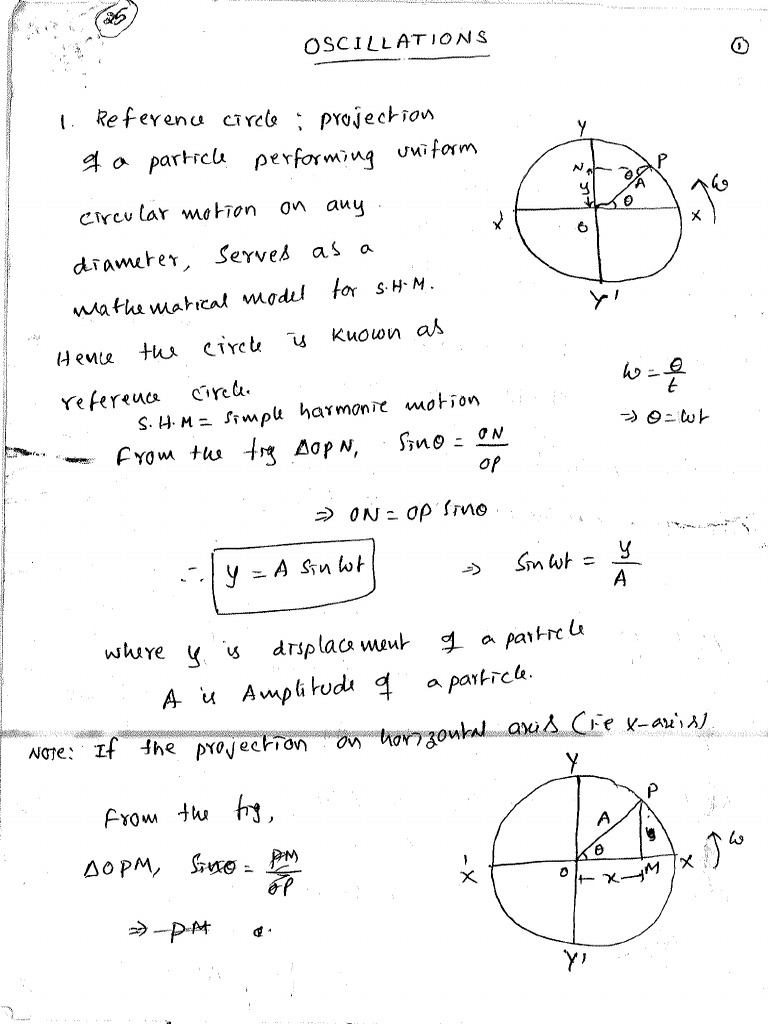 25
OSCILLATIONS
1
1. Reference circle : projection
of a particle performing uniform
circular motion on any
diameter, serves as a
mathematical model for S.H.M.
Hence the circle is known as
reference circle.
S.H.M = simple harmonic motion
Y
N
P
θ
y
A
θ
ω
X'
O
X
Y'
ω = θ/t
⇒ θ = ωt
From the fig ΔOPN, Sinθ = ON/OP
⇒ ON = OP Sinθ
∴ y = A Sin ωt ⇒ Sin ωt = y/A
where y is displacement of a particle
A is Amplitude of a particle.
NOTE: If the projection on horizontal axis (i.e x-axis)
From the fig,
ΔOPM, Sinθ = PM/OP
⇒ PM
Y
P
A
θ
ω
X'
O
x
M
X
Y'